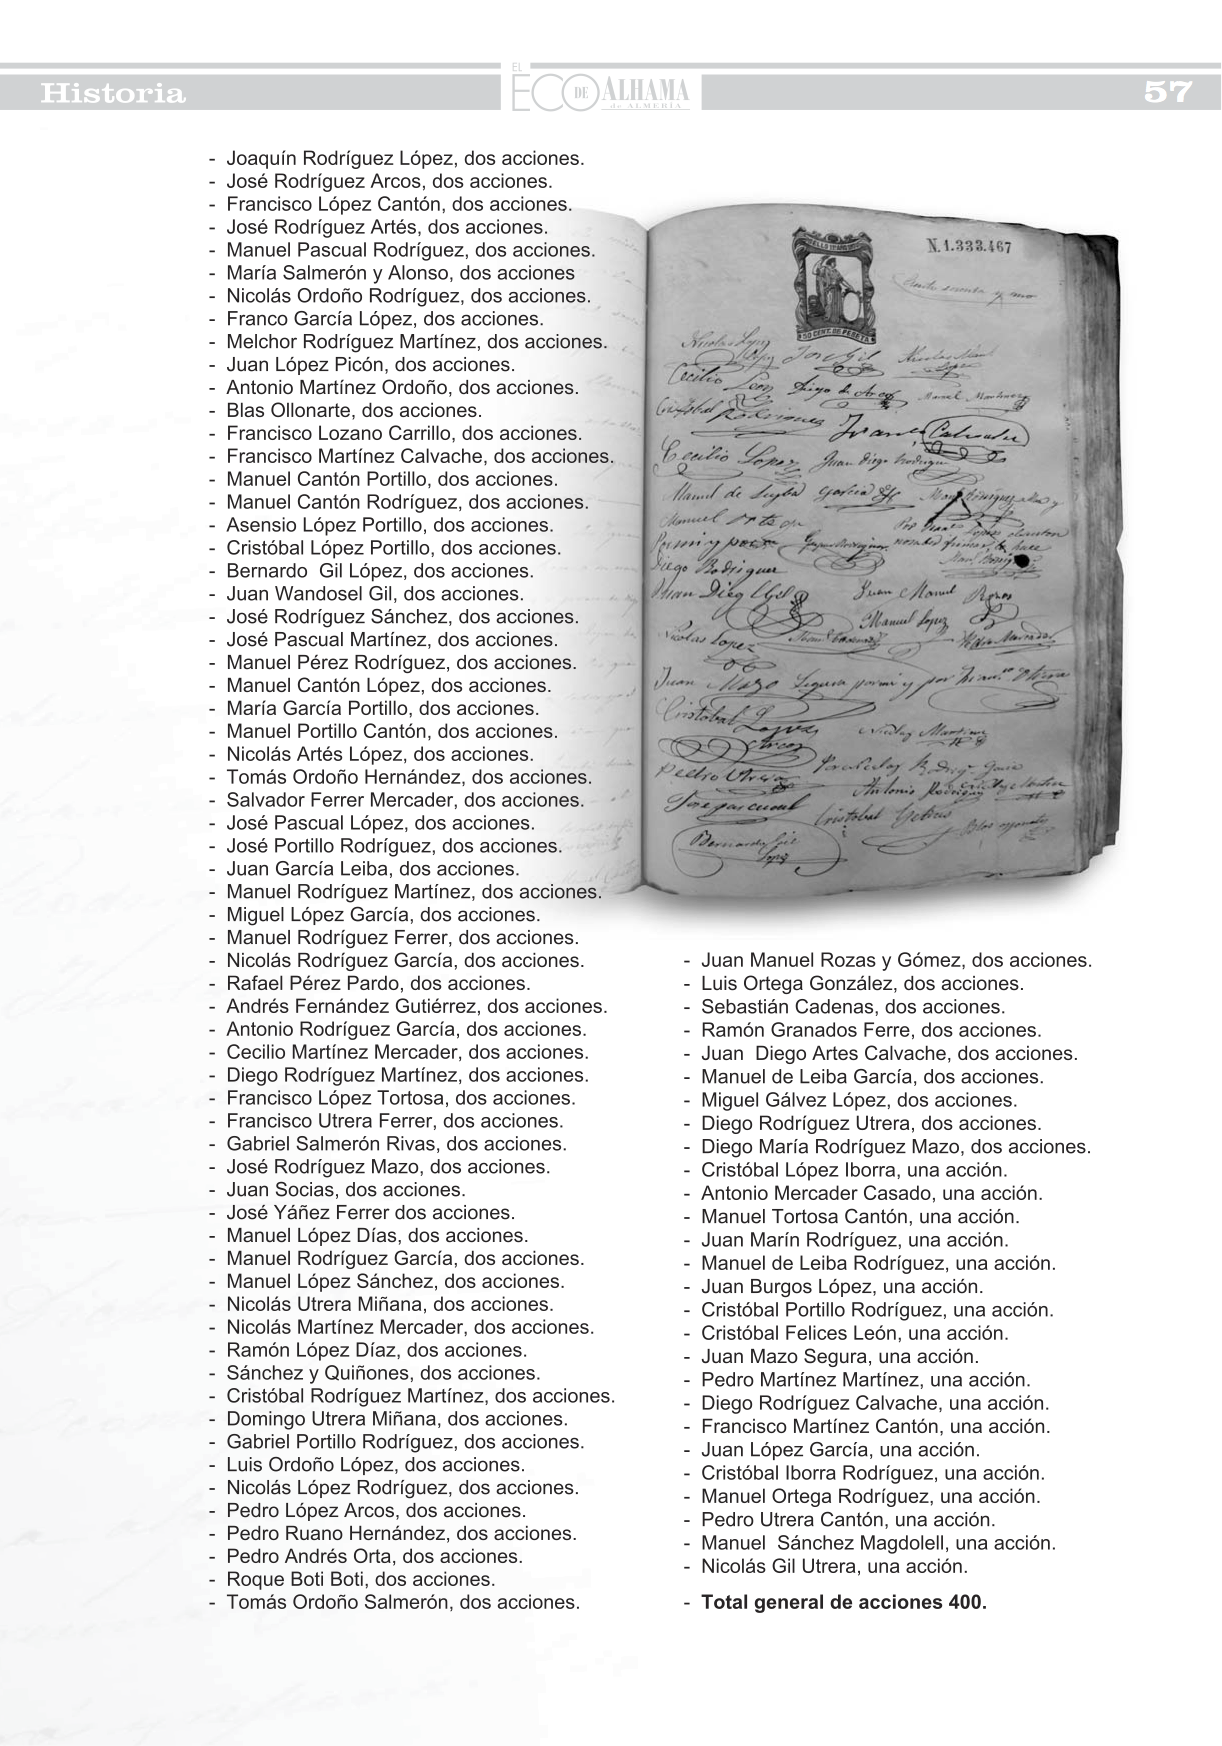 Historia
EL
ECO DE ALHAMA
de ALMERÍA
57
- Joaquín Rodríguez López, dos acciones.
- José Rodríguez Arcos, dos acciones.
- Francisco López Cantón, dos acciones.
- José Rodríguez Artés, dos acciones.
- Manuel Pascual Rodríguez, dos acciones.
- María Salmerón y Alonso, dos acciones
- Nicolás Ordoño Rodríguez, dos acciones.
- Franco García López, dos acciones.
- Melchor Rodríguez Martínez, dos acciones.
- Juan López Picón, dos acciones.
- Antonio Martínez Ordoño, dos acciones.
- Blas Ollonarte, dos acciones.
- Francisco Lozano Carrillo, dos acciones.
- Francisco Martínez Calvache, dos acciones.
- Manuel Cantón Portillo, dos acciones.
- Manuel Cantón Rodríguez, dos acciones.
- Asensio López Portillo, dos acciones.
- Cristóbal López Portillo, dos acciones.
- Bernardo  Gil López, dos acciones.
- Juan Wandosel Gil, dos acciones.
- José Rodríguez Sánchez, dos acciones.
- José Pascual Martínez, dos acciones.
- Manuel Pérez Rodríguez, dos acciones.
- Manuel Cantón López, dos acciones.
- María García Portillo, dos acciones.
- Manuel Portillo Cantón, dos acciones.
- Nicolás Artés López, dos acciones.
- Tomás Ordoño Hernández, dos acciones.
- Salvador Ferrer Mercader, dos acciones.
- José Pascual López, dos acciones.
- José Portillo Rodríguez, dos acciones.
- Juan García Leiba, dos acciones.
- Manuel Rodríguez Martínez, dos acciones.
- Miguel López García, dos acciones.
- Manuel Rodríguez Ferrer, dos acciones.
- Nicolás Rodríguez García, dos acciones.
- Rafael Pérez Pardo, dos acciones.
- Andrés Fernández Gutiérrez, dos acciones.
- Antonio Rodríguez García, dos acciones.
- Cecilio Martínez Mercader, dos acciones.
- Diego Rodríguez Martínez, dos acciones.
- Francisco López Tortosa, dos acciones.
- Francisco Utrera Ferrer, dos acciones.
- Gabriel Salmerón Rivas, dos acciones.
- José Rodríguez Mazo, dos acciones.
- Juan Socias, dos acciones.
- José Yáñez Ferrer dos acciones.
- Manuel López Días, dos acciones.
- Manuel Rodríguez García, dos acciones.
- Manuel López Sánchez, dos acciones.
- Nicolás Utrera Miñana, dos acciones.
- Nicolás Martínez Mercader, dos acciones.
- Ramón López Díaz, dos acciones.
- Sánchez y Quiñones, dos acciones.
- Cristóbal Rodríguez Martínez, dos acciones.
- Domingo Utrera Miñana, dos acciones.
- Gabriel Portillo Rodríguez, dos acciones.
- Luis Ordoño López, dos acciones.
- Nicolás López Rodríguez, dos acciones.
- Pedro López Arcos, dos acciones.
- Pedro Ruano Hernández, dos acciones.
- Pedro Andrés Orta, dos acciones.
- Roque Boti Boti, dos acciones.
- Tomás Ordoño Salmerón, dos acciones.
N.1.333.467
50 CENT. DE PESETA
Nicolas Lopez
Lopez José Gil
Cecilio Leon Diego de Arcos
Cristobal Rodriguez
Calvache
Cecilio Lopez Juan Diego Rodriguez
Manuel de Leyba Garcia
Diego Rodriguez
Juan Diego Gil Juan Manuel Rozas
Manuel Lopez
Nicolas Lopez
Juan Mazo Segura por mi y por
Cristobal Lopez
Arcos Nicolas Martinez
Pedro Utrera
Antonio Rodriguez
Jose pascual
Cristobal
Bernardo Gil
Lopez
- Juan Manuel Rozas y Gómez, dos acciones.
- Luis Ortega González, dos acciones.
- Sebastián Cadenas, dos acciones.
- Ramón Granados Ferre, dos acciones.
- Juan  Diego Artes Calvache, dos acciones.
- Manuel de Leiba García, dos acciones.
- Miguel Gálvez López, dos acciones.
- Diego Rodríguez Utrera, dos acciones.
- Diego María Rodríguez Mazo, dos acciones.
- Cristóbal López Iborra, una acción.
- Antonio Mercader Casado, una acción.
- Manuel Tortosa Cantón, una acción.
- Juan Marín Rodríguez, una acción.
- Manuel de Leiba Rodríguez, una acción.
- Juan Burgos López, una acción.
- Cristóbal Portillo Rodríguez, una acción.
- Cristóbal Felices León, una acción.
- Juan Mazo Segura, una acción.
- Pedro Martínez Martínez, una acción.
- Diego Rodríguez Calvache, una acción.
- Francisco Martínez Cantón, una acción.
- Juan López García, una acción.
- Cristóbal Iborra Rodríguez, una acción.
- Manuel Ortega Rodríguez, una acción.
- Pedro Utrera Cantón, una acción.
- Manuel  Sánchez Magdolell, una acción.
- Nicolás Gil Utrera, una acción.
- Total general de acciones 400.